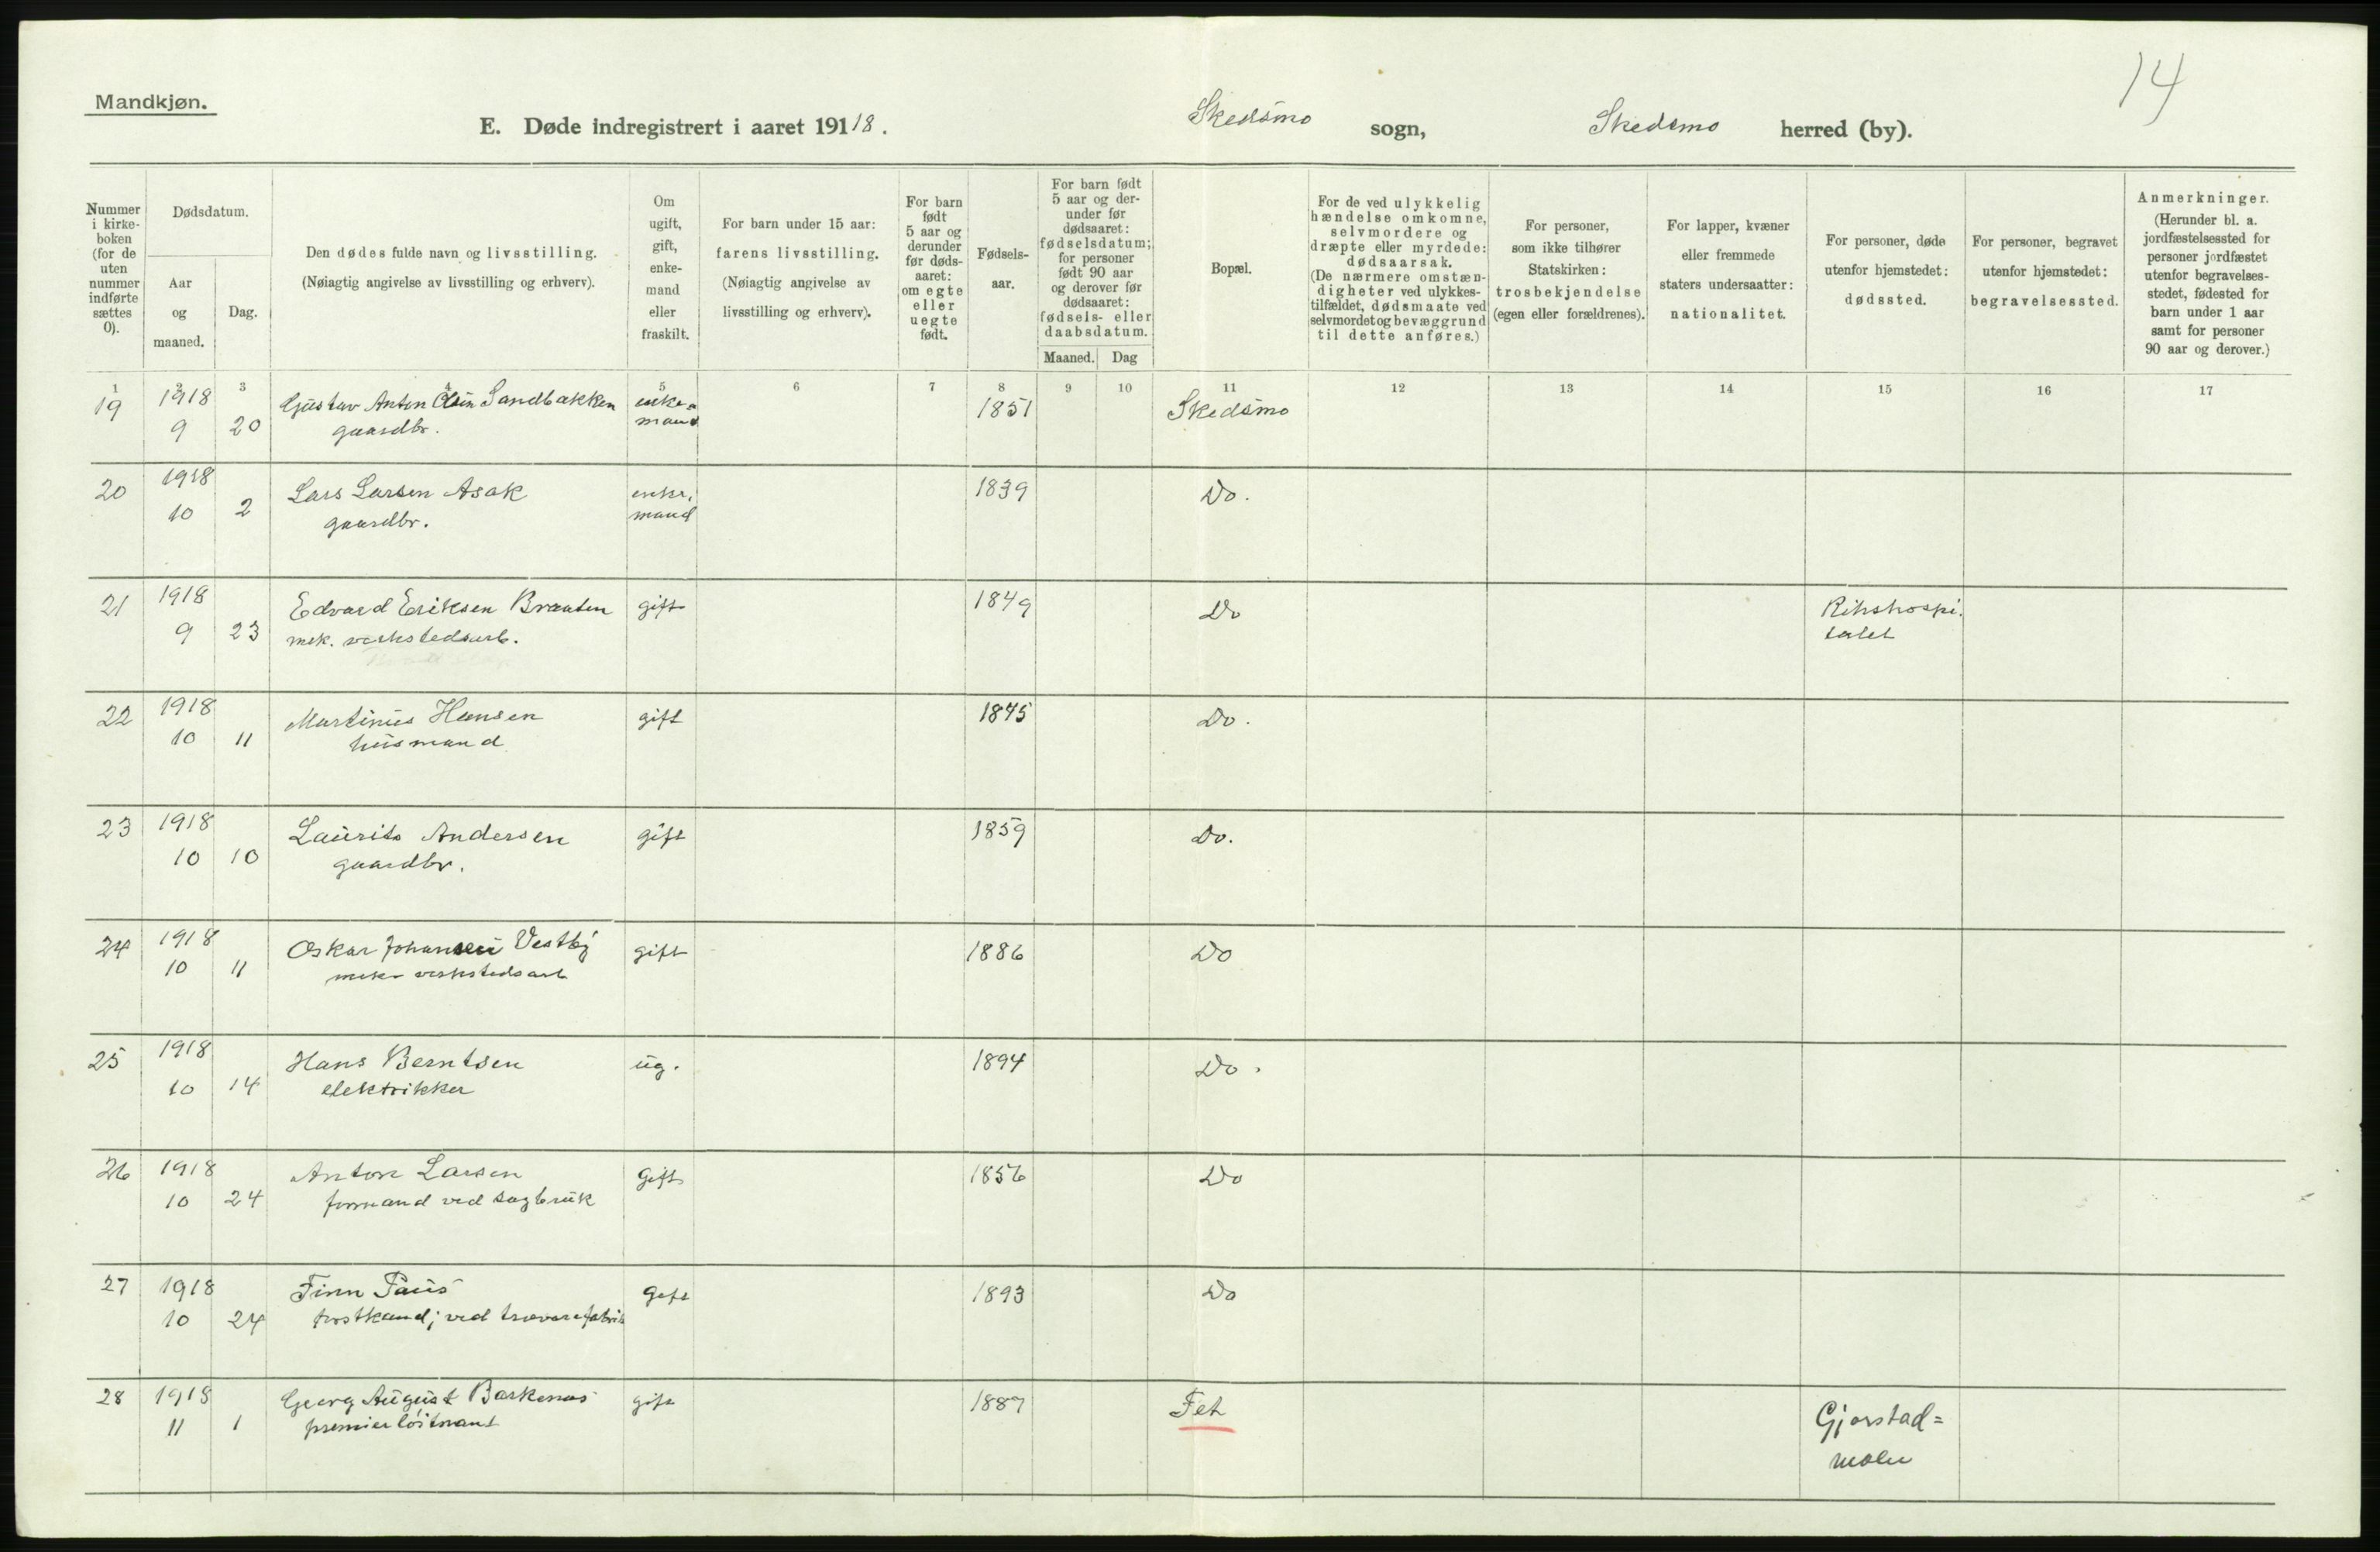 14
Mandkjøn.
E. Døde indregistrert i aaret 19118. Skedsmo sogn, Skedsmo herred (by).
Nummer i kirke- boken (for de uten nummer indførte sættes 0).
Dødsdatum.
Aar og maaned.
Dag.
Den dødes fulde navn og livsstilling.
(Nøiagtig angivelse av livsstilling og erhverv).
Om ugift, gift, enke- mand eller fraskilt.
For barn under 15 aar:
farens livsstilling.
(Nøiagtig angivelse av
livsstilling og erhverv).
For barn født 5 aar og derunder før døds- aaret: om egte eller uegte født.
Fødsels- aar.
For barn født 5 aar og der- under før dødsaaret: fødselsdatum; for personer født 90 aar og derover før dødsaaret: fødsels- eller daabsdatum.
Maaned. Dag
Bopæl.
For de ved ulykkelig hændelse omkomne, selvmordere og dræpte eller myrdede: dødsaarsak. (De nærmere omstæn- digheter ved ulykkes- tilfældet, dødsmaate ved selvmordet og bevæggrund til dette anføres.)
For personer, som ikke tilhører Statskirken: trosbekjendelse (egen eller forældrenes).
For lapper, kvæner eller fremmede staters undersaatter: nationalitet.
For personer, døde utenfor hjemstedet: dødssted.
For personer, begravet utenfor hjemstedet: begravelsessted.
Anmerkninger. (Herunder bl. a. jordfæstelsessted for personer jordfæstet utenfor begravelses- stedet, fødested for barn under 1 aar samt for personer 90 aar og derover.)
1 2 3 4 5 6 7 8 9 10 11 12 13 14 15 16 17
19 1918 Gustav Anton Olsen Sandbakken enke- 1851 Skedsmo
9 20 gaardbr. mand
20 1918 Lars Larsen Asak enke, 1839 Do.
10 2 gaardbr. mand
21 1918 Edvard Eriksen Braaten gift 1849 Do Rikshospi.
9 23 mek. verkstedsarb. talet
22 1918 Martinus Hansen gift 1845 Do.
10 11 husmand
23 1918 Laurits Andersen gift 1859 Do.
10 10 gaardbr.
24 1918 Oskar Johansen Vestby gift 1886 Do
10 11 mek. verkstedsarb
25 1918 Hans Berntsen ug. 1894 Do.
10 14 elektrikker
26 1918 Anton Larsen gift 1856 Do
10 24 formand ved sagbruk
27 1918 Finn Paus gift 1893 Do
10 24 forstkand; ved trævarefabrik
28 1918 Georg August Barkenæs gift 1887 Fet
11 1 premierløitnant Gjorstad=